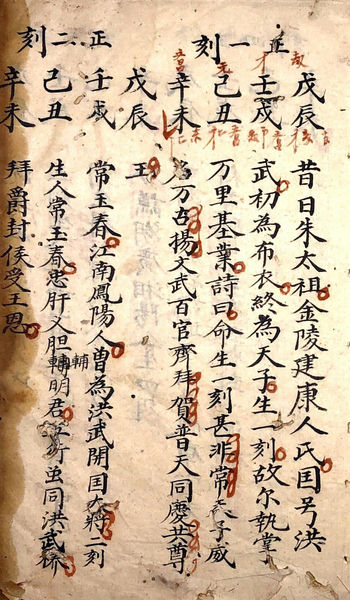 正一刻
戊辰 昔日朱太祖金陵建康人氏囯号洪
壬戌 武初為布衣終為天子生一刻故尔執掌
己丑 万里基業詩曰命生一刻甚非常天子威
辛未 名万古揚文武百官齊拜賀普天同慶共尊
正二刻
戊辰 王
壬戌 常玉春江南鳳陽人曽為洪武開囯大將二刻
己丑 生人常玉春忠肝义胆輔明君 虽同洪武
辛未 拜爵封侯受王恩